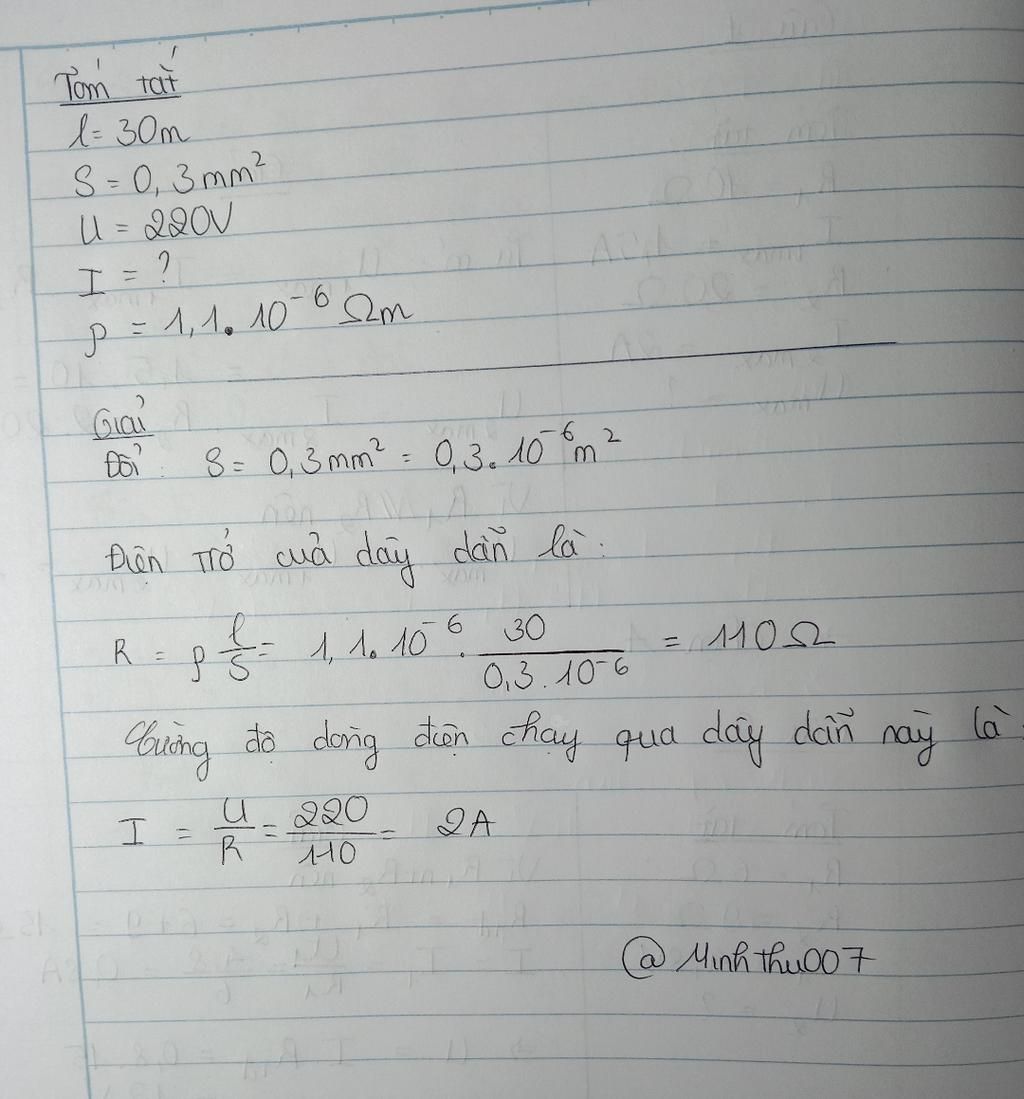 Tóm tắt
l = 30m
S = 0,3 mm²
U = 220V
I = ?
ρ = 1,1.10⁻⁶ Ωm
Giải
Đổi: S = 0,3 mm² = 0,3.10⁻⁶ m²
Điện trở của dây dẫn là:
R = ρ l/S = 1,1.10⁻⁶ . 30/(0,3.10⁻⁶) = 110Ω
Cường độ dòng điện chạy qua dây dẫn này là:
I = U/R = 220/110 = 2A
@Minhthu007